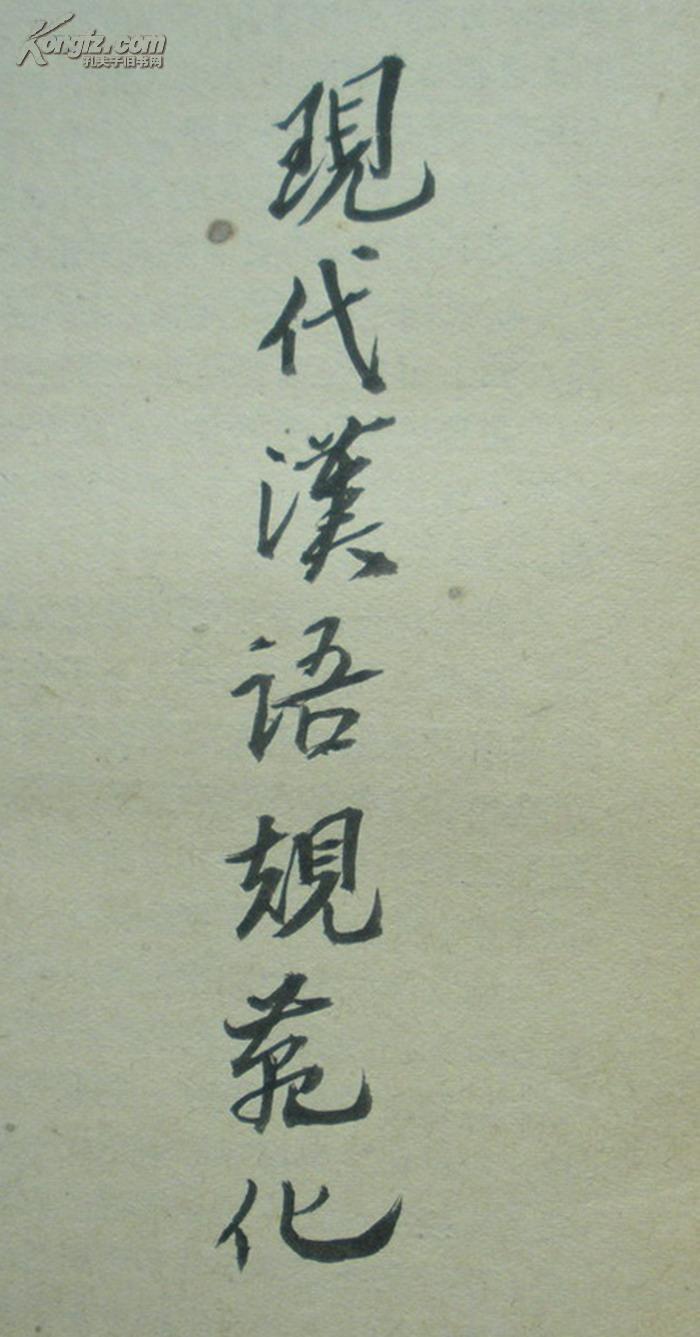 Kongfz.com
孔夫子旧书网
現代漢语規范化